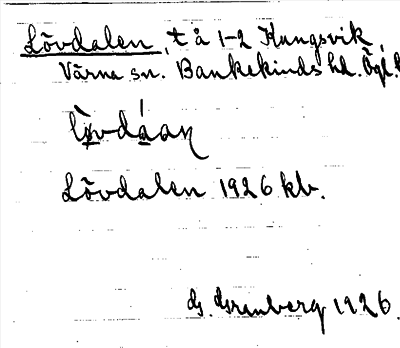 Lövdalen, t å 1-2 Kungsvik,
Värna sn. Bankekinds hd. Ögl.
Lövdalen 1926 kb.
G. Granberg 1926.